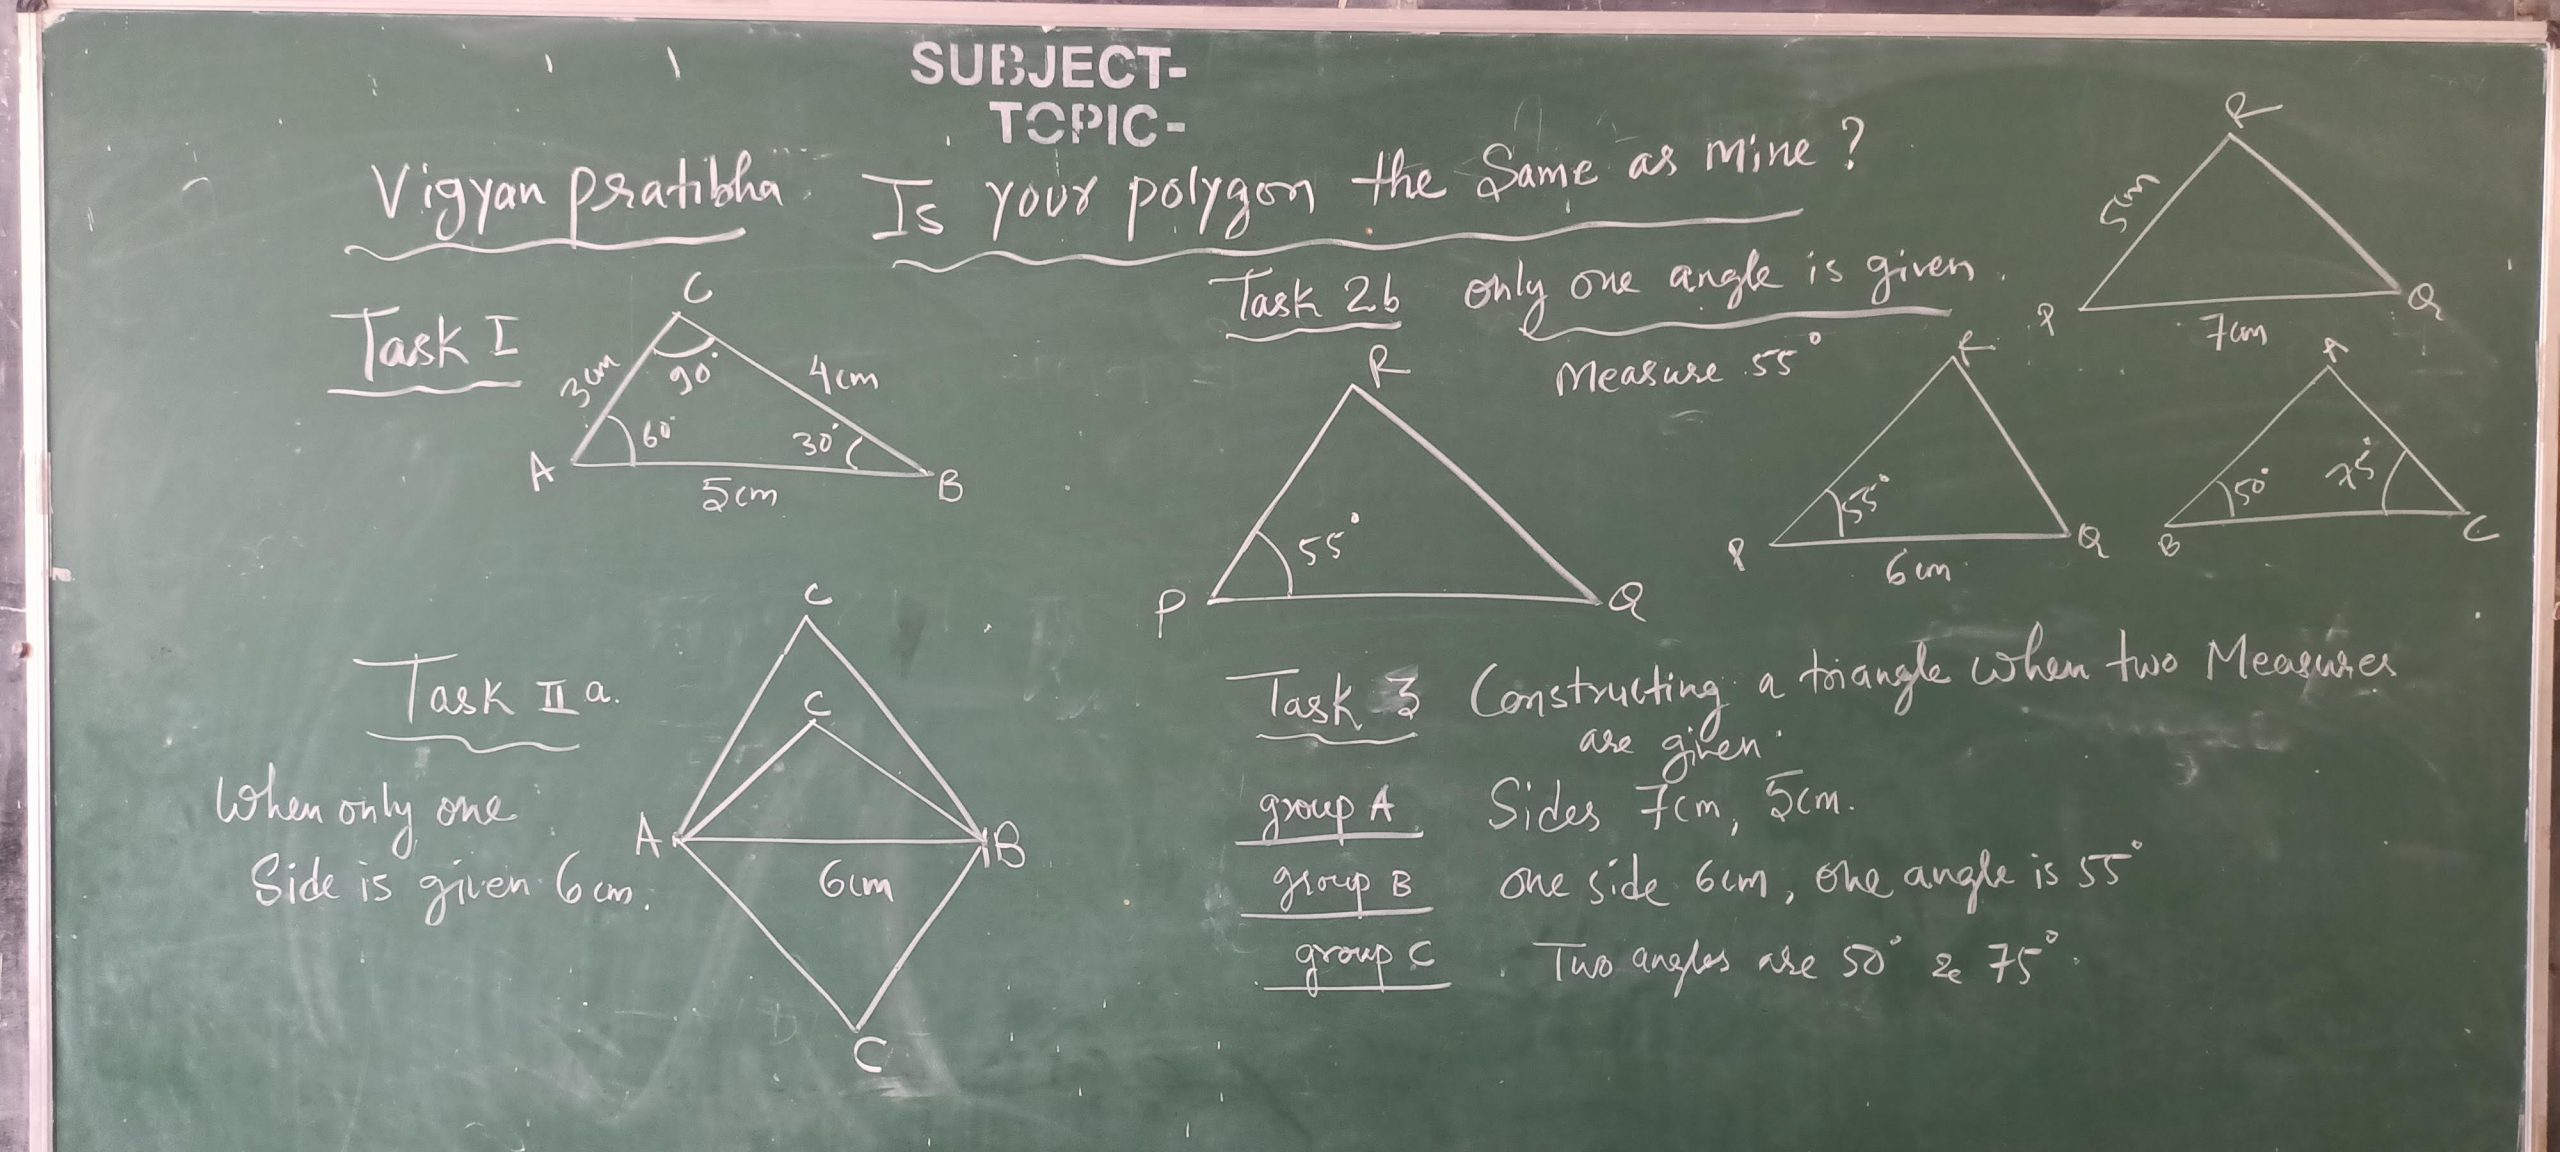 SUBJECT-
TOPIC-
Vigyan pratibha Is your polygon the Same as mine?
Task I
C
3cm
90°
4cm
60°
30°
A
5cm
B
Task IIa.
When only one
Side is given 6cm.
C
C
A
B
6cm
C
Task 2b only one angle is given.
Measure 55°
R
55°
P
Q
R
5cm
P
7cm
Q
R
55°
P
6cm
Q
A
50°
75°
B
C
Task 3 Constructing a triangle when two Measures
are given.
group A Sides 7cm, 5cm.
group B one side 6cm, one angle is 55°
group C Two angles are 50° & 75°.